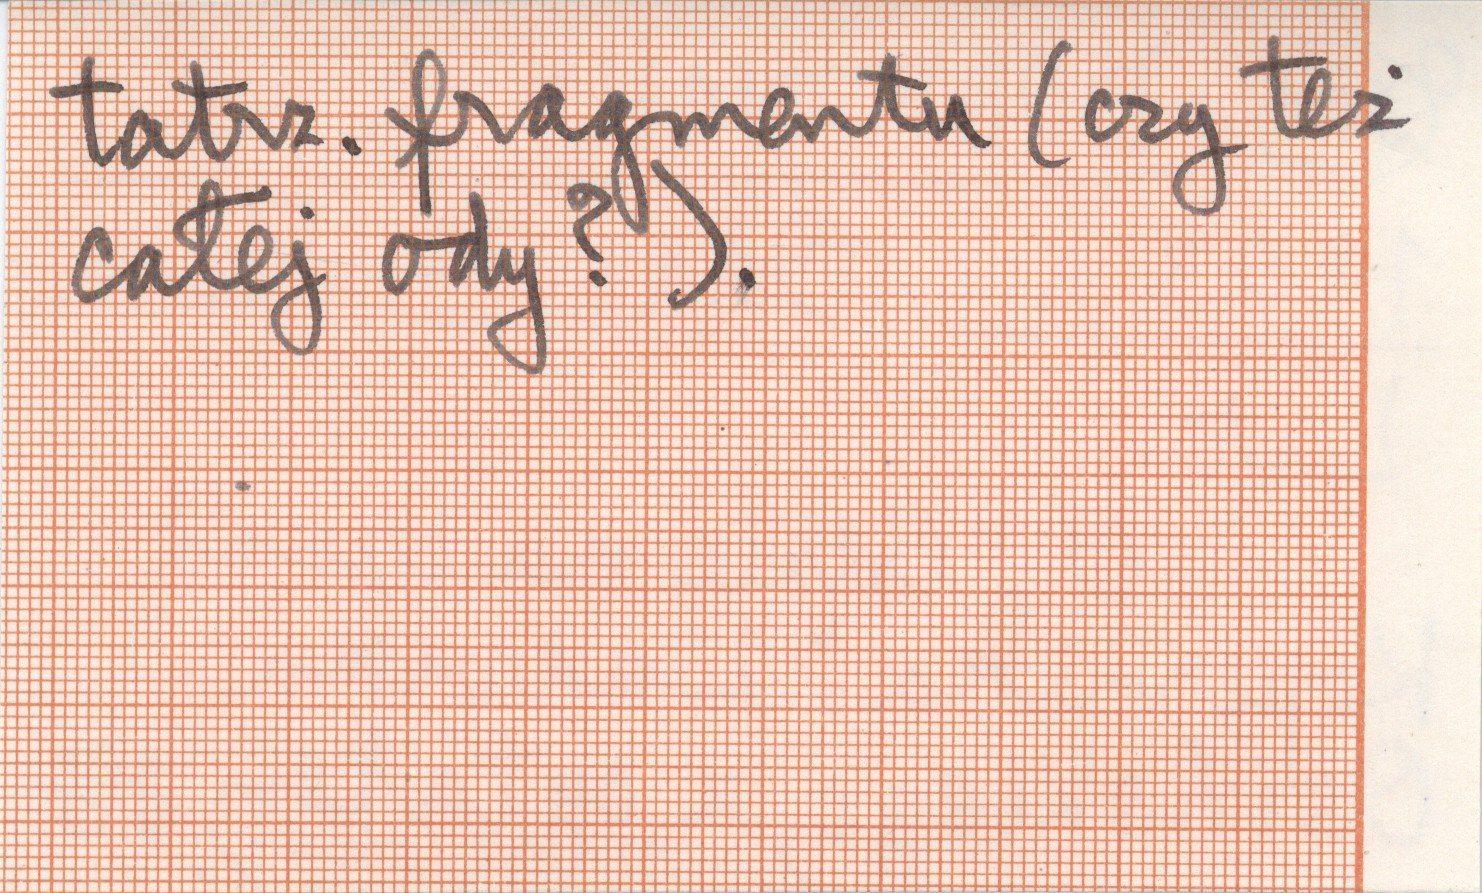 tatrz. fragmentu (czy też
całej ody?).